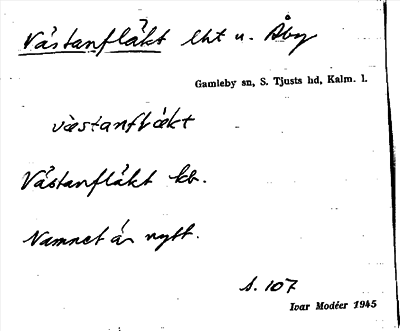 Västanfläkt lht u. Åby
Gamleby sn, S. Tjusts hd, Kalm. l.
västanfläkt
Västanfläkt kb.
Namnet är nytt.
s. 107
Ivar Modéer 1945